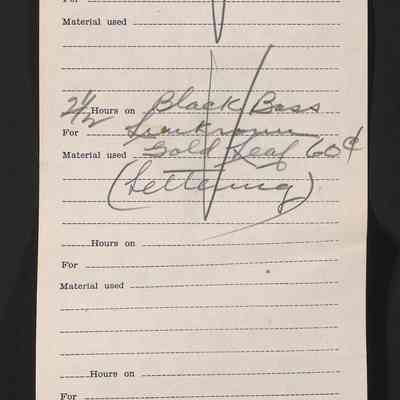 For
Material used
2 1/2 Hours on Black Bass
For Unknown
Material used Gold Leaf 60¢
(Lettering)
Hours on
For
Material used
Hours on
For